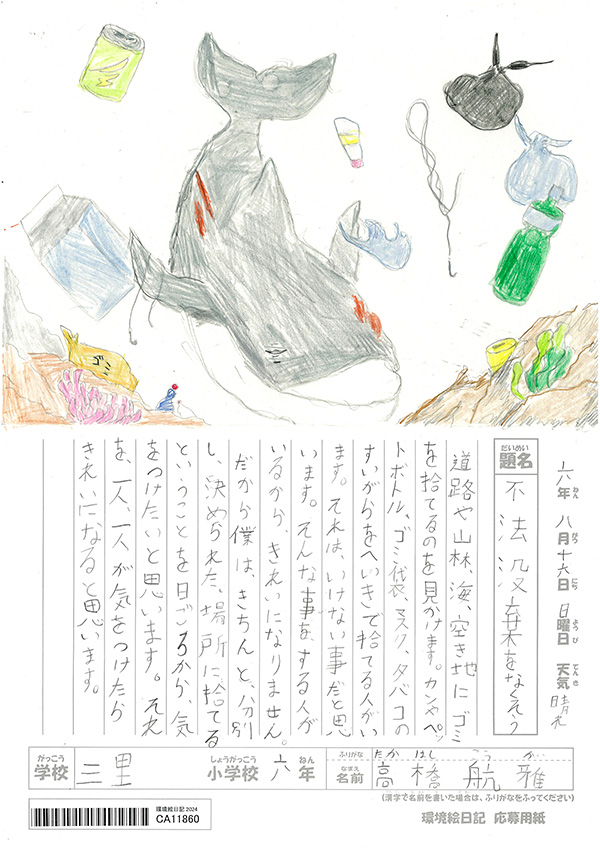 ゴミ
六年 八月 十六日 日曜日 天気 晴れ
ねん がつ にち ようび てんき
だいめい
題名 不法没棄をなくそう
道路や山林、海、空き地にゴミ
を捨てるのを見かけます。カンやペッ
トボトル、ゴミ袋、マスク、タバコの
すいがらをへいきで捨てる人がい
ます。それは、いけない事だと思
います。そんな事を、する人が
いるから、きれいになりません。
だから僕は、きちんと、分別
し、決められた、場所に捨てる
ということを日ごろから、気
をつけたいと思います。それ
を、一人、一人が気をつけたら
きれいになると思います。
がっこう しょうがっこう ねん ふりがな たかはし こうが
学校 三里 小学校 六年 なまえ 名前 高橋 航雅
(漢字で名前を書いた場合は、ふりがなをふってください)
環境絵日記 2024
CA11860
環境絵日記 応募用紙